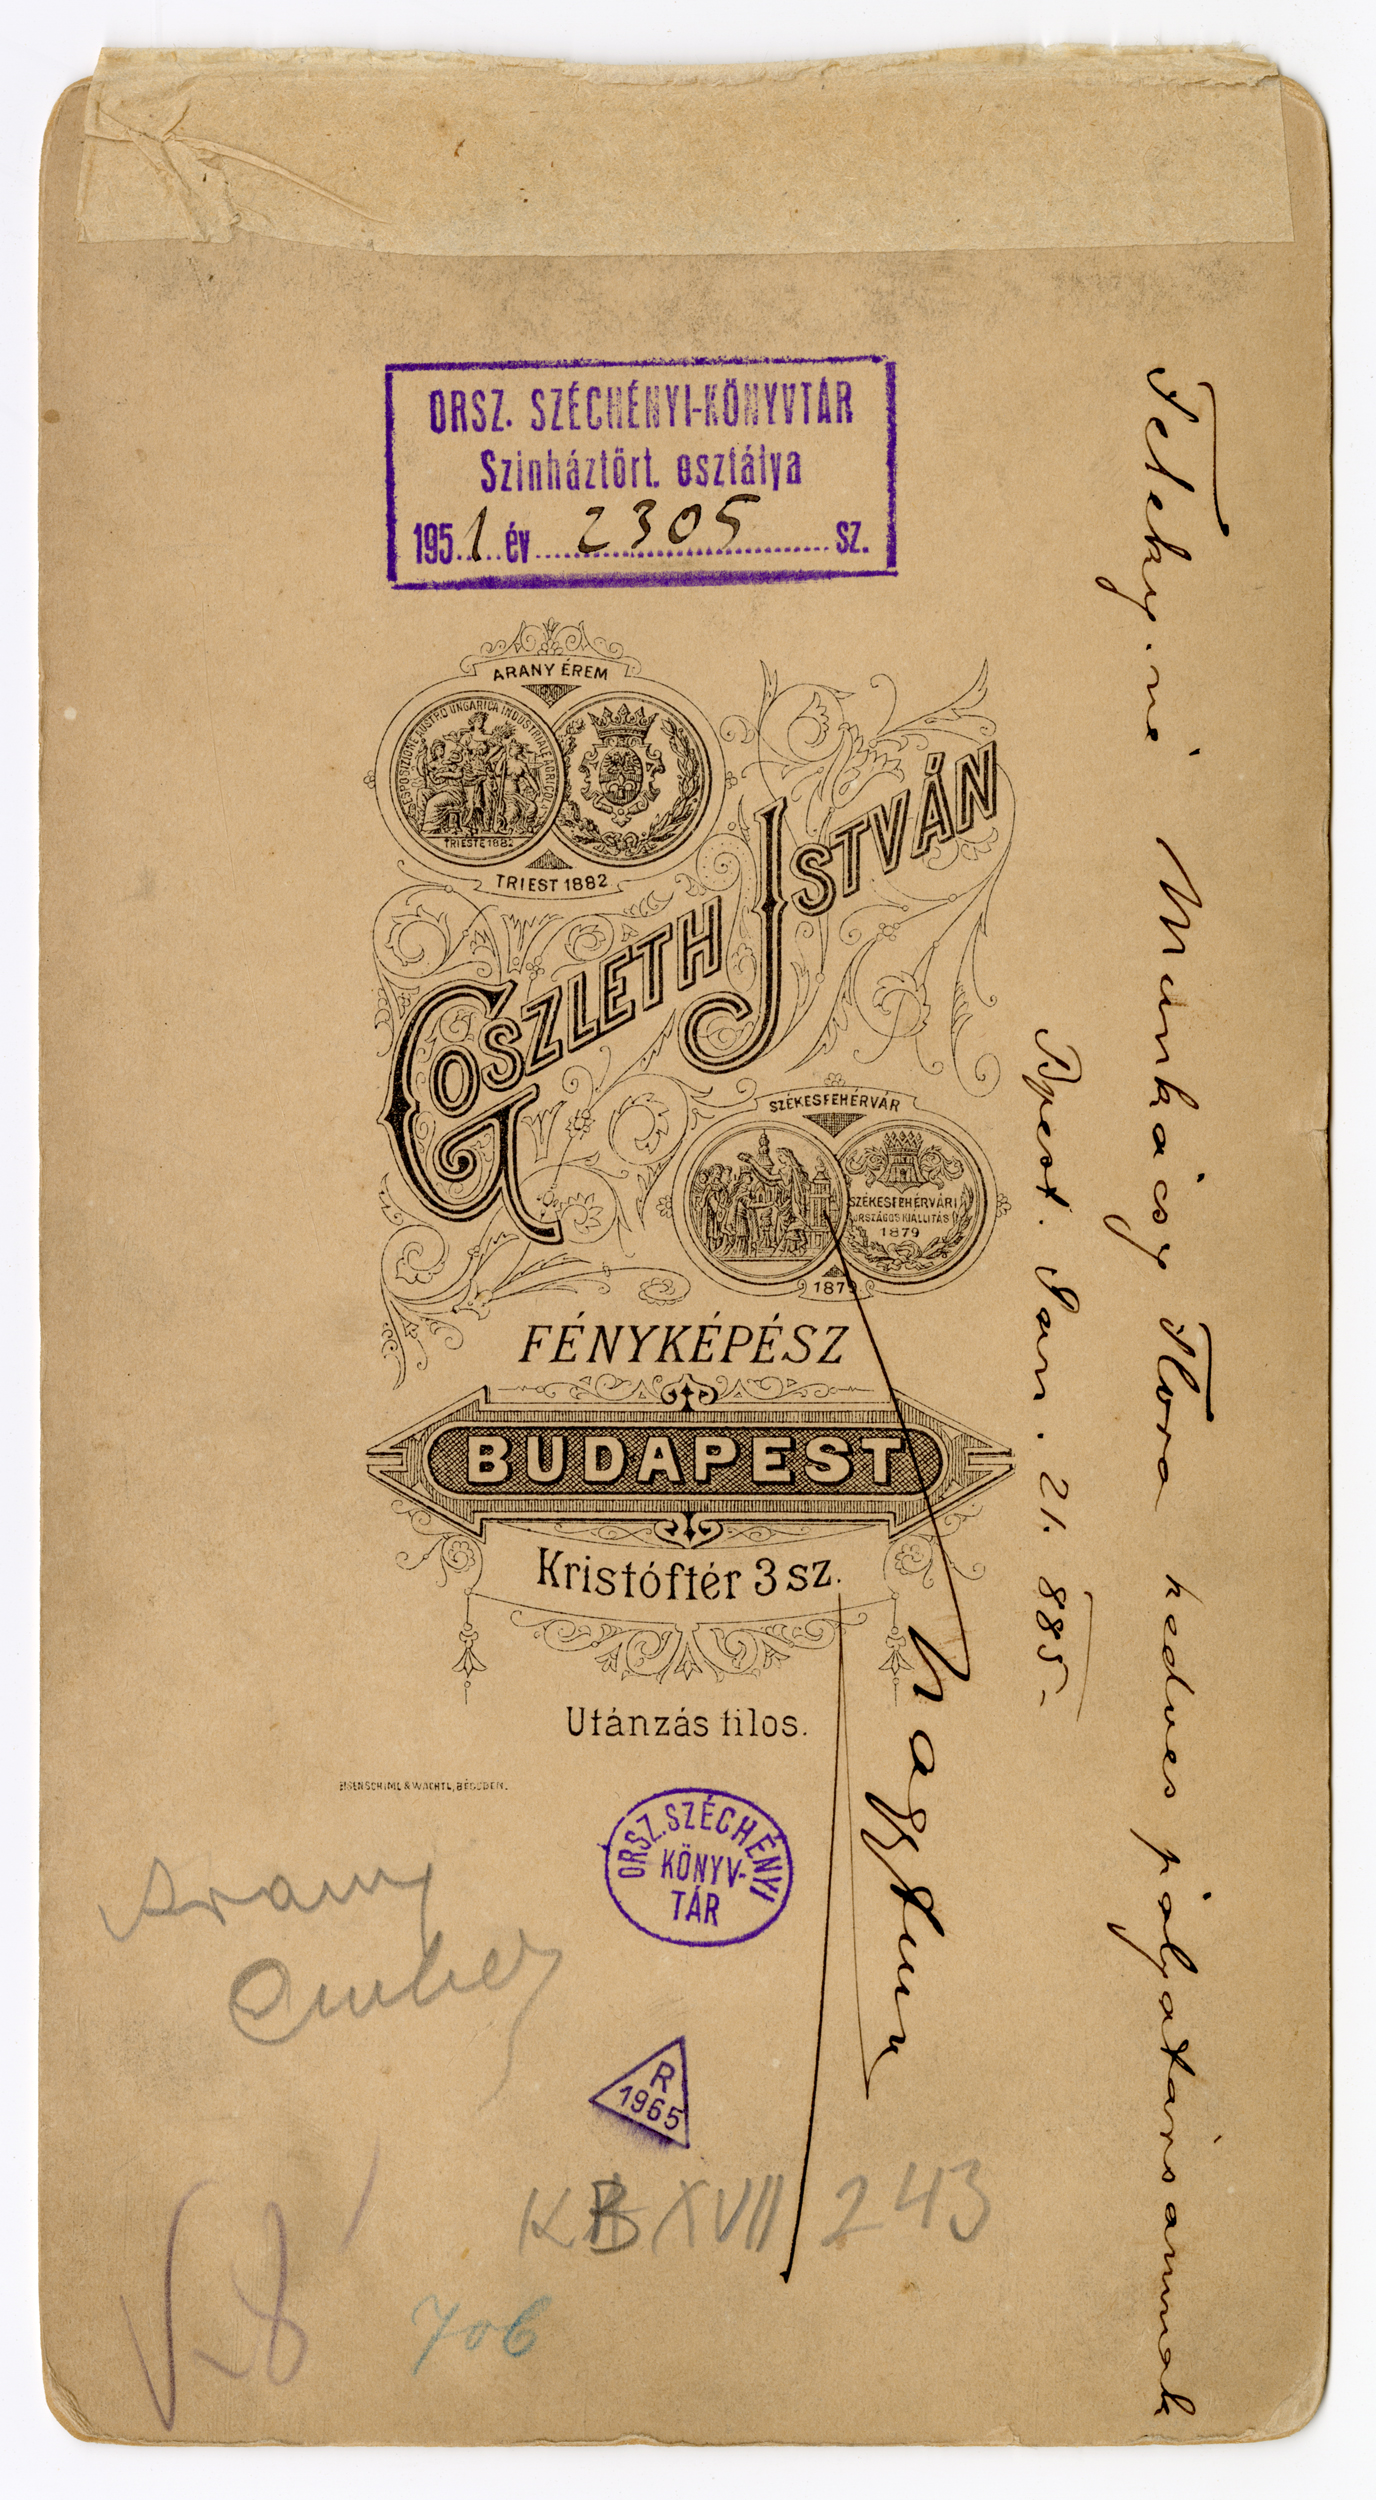 ORSZ. SZÉCHÉNYI-KÖNYVTÁR
Szinháztört. osztálya
1951 év 2305 sz.
ARANY ÉREM
ESPOSIZIONE AUSTRO UNGARICA INDUSTRIALE AGRICOLA
TRIESTE 1882
TRIEST 1882
GOSZLETH ISTVÁN
SZÉKESFEHÉRVÁR
SZÉKESFEHÉRVÁRI
ORSZÁGOS KIÁLLITÁS
1879
1879
FÉNYKÉPÉSZ
BUDAPEST
Kristóftér 3 sz.
Utánzás tilos.
EISENSCHIML & WACHTL, BÉCSBEN.
ORSZ. SZÉCHÉNYI
KÖNYV-
TÁR
Arany
Ember
R
1965
KB XVII 243
706
Telekyné Munkácsy Flora kedves pályatársamnak
Bpest. Jan. 21. 885-